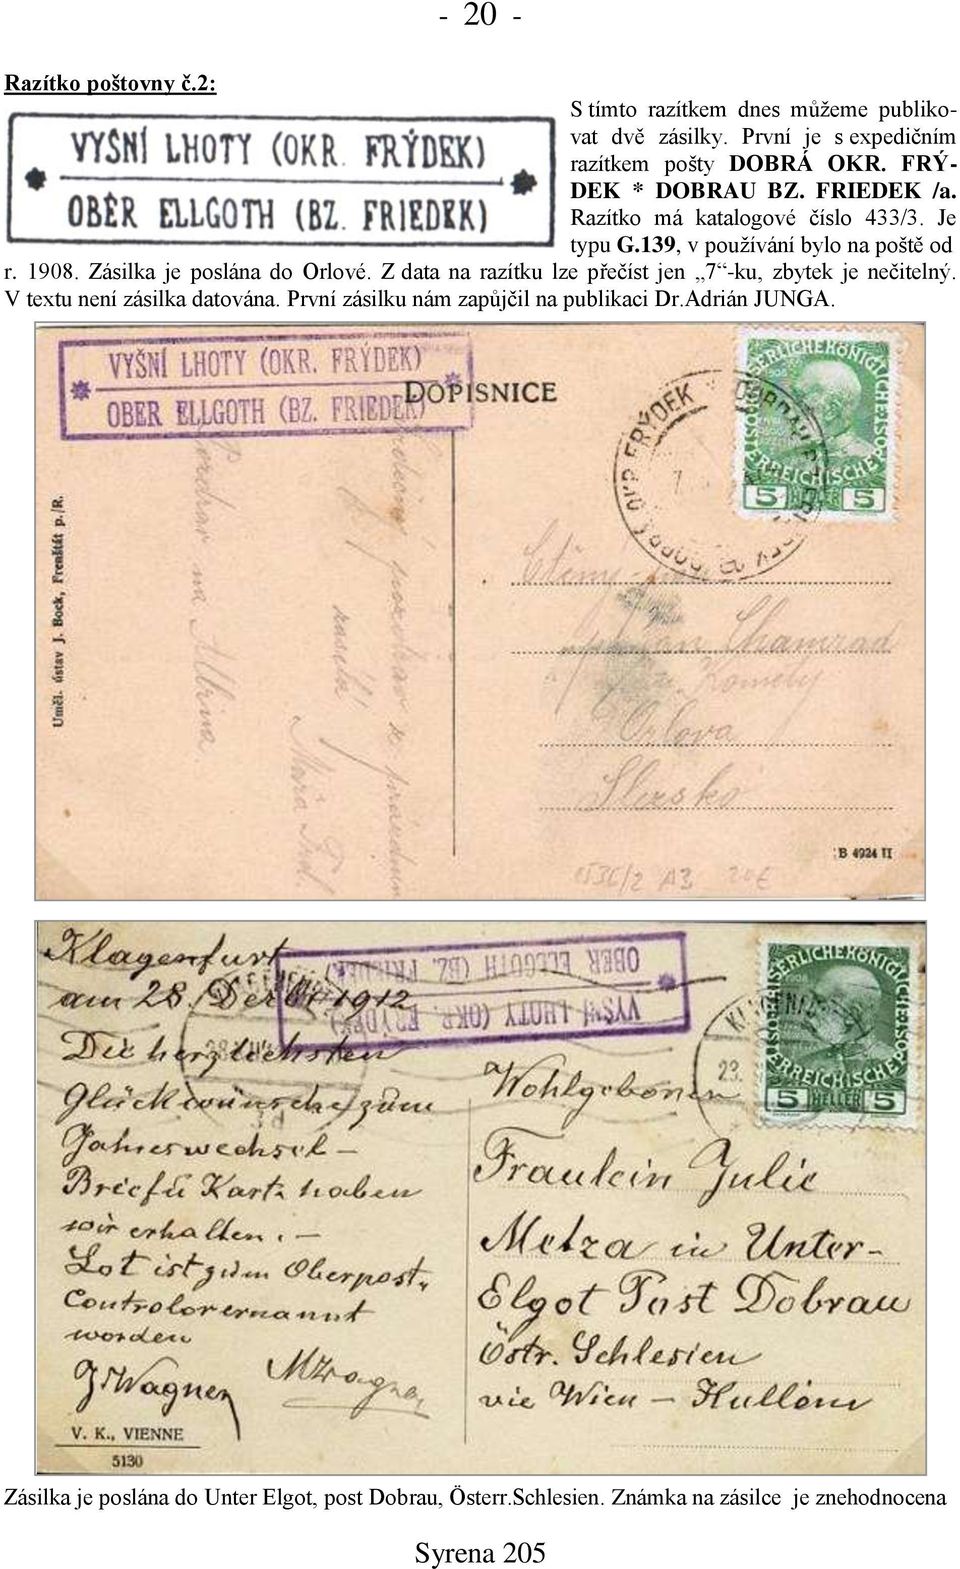 - 20 -
Razítko poštovny č.2:
VYŠNÍ LHOTY (OKR. FRÝDEK)
OBER ELLGOTH (BZ. FRIEDEK)
S tímto razítkem dnes můžeme publiko-
vat dvě zásilky. První je s expedičním
razítkem pošty DOBRÁ OKR. FRÝ-
DEK * DOBRAU BZ. FRIEDEK /a.
Razítko má katalogové číslo 433/3. Je
typu G.139, v používání bylo na poště od
r. 1908. Zásilka je poslána do Orlové. Z data na razítku lze přečíst jen „7“-ku, zbytek je nečitelný.
V textu není zásilka datována. První zásilku nám zapůjčil na publikaci Dr.Adrián JUNGA.
VYŠNÍ LHOTY (OKR. FRÝDEK)
OBER ELLGOTH (BZ. FRIEDEK)
DOPISNICE
5 HELLER 5
Uměl. ústav J. Bock, Frenštát p./R.
Jan Chamrad
Orlova
Slezsko
B 4924 II
A3 20€
Klagenfurt
am 28. Dez 1912
Die herzlichsten
Glückwünsche zum
Jahreswechsel –
Brief u Karte haben
wir erhalten. –
Lot ist zum Oberpost-
Controlor ernannt
worden
J Wagner
MWagner
V. K., VIENNE
5130
OBER ELLGOTH (BZ. FRIEDEK)
VYŠNÍ LHOTY (OKR. FRÝDEK)
5 HELLER 5
Wohlgeboren
Fraulein Julie
Metza in Unter-
Elgot Post Dobrau
Östr. Schlesien
vie Wien – Hullein
Zásilka je poslána do Unter Elgot, post Dobrau, Österr.Schlesien. Známka na zásilce je znehodnocena
Syrena 205